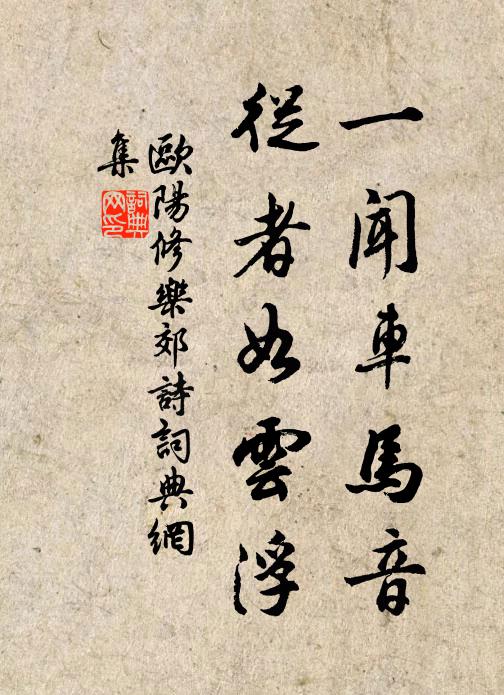 一聞車馬音
從者如雲浮
歐陽修樂郊詩詞典網
集
詞典
网印